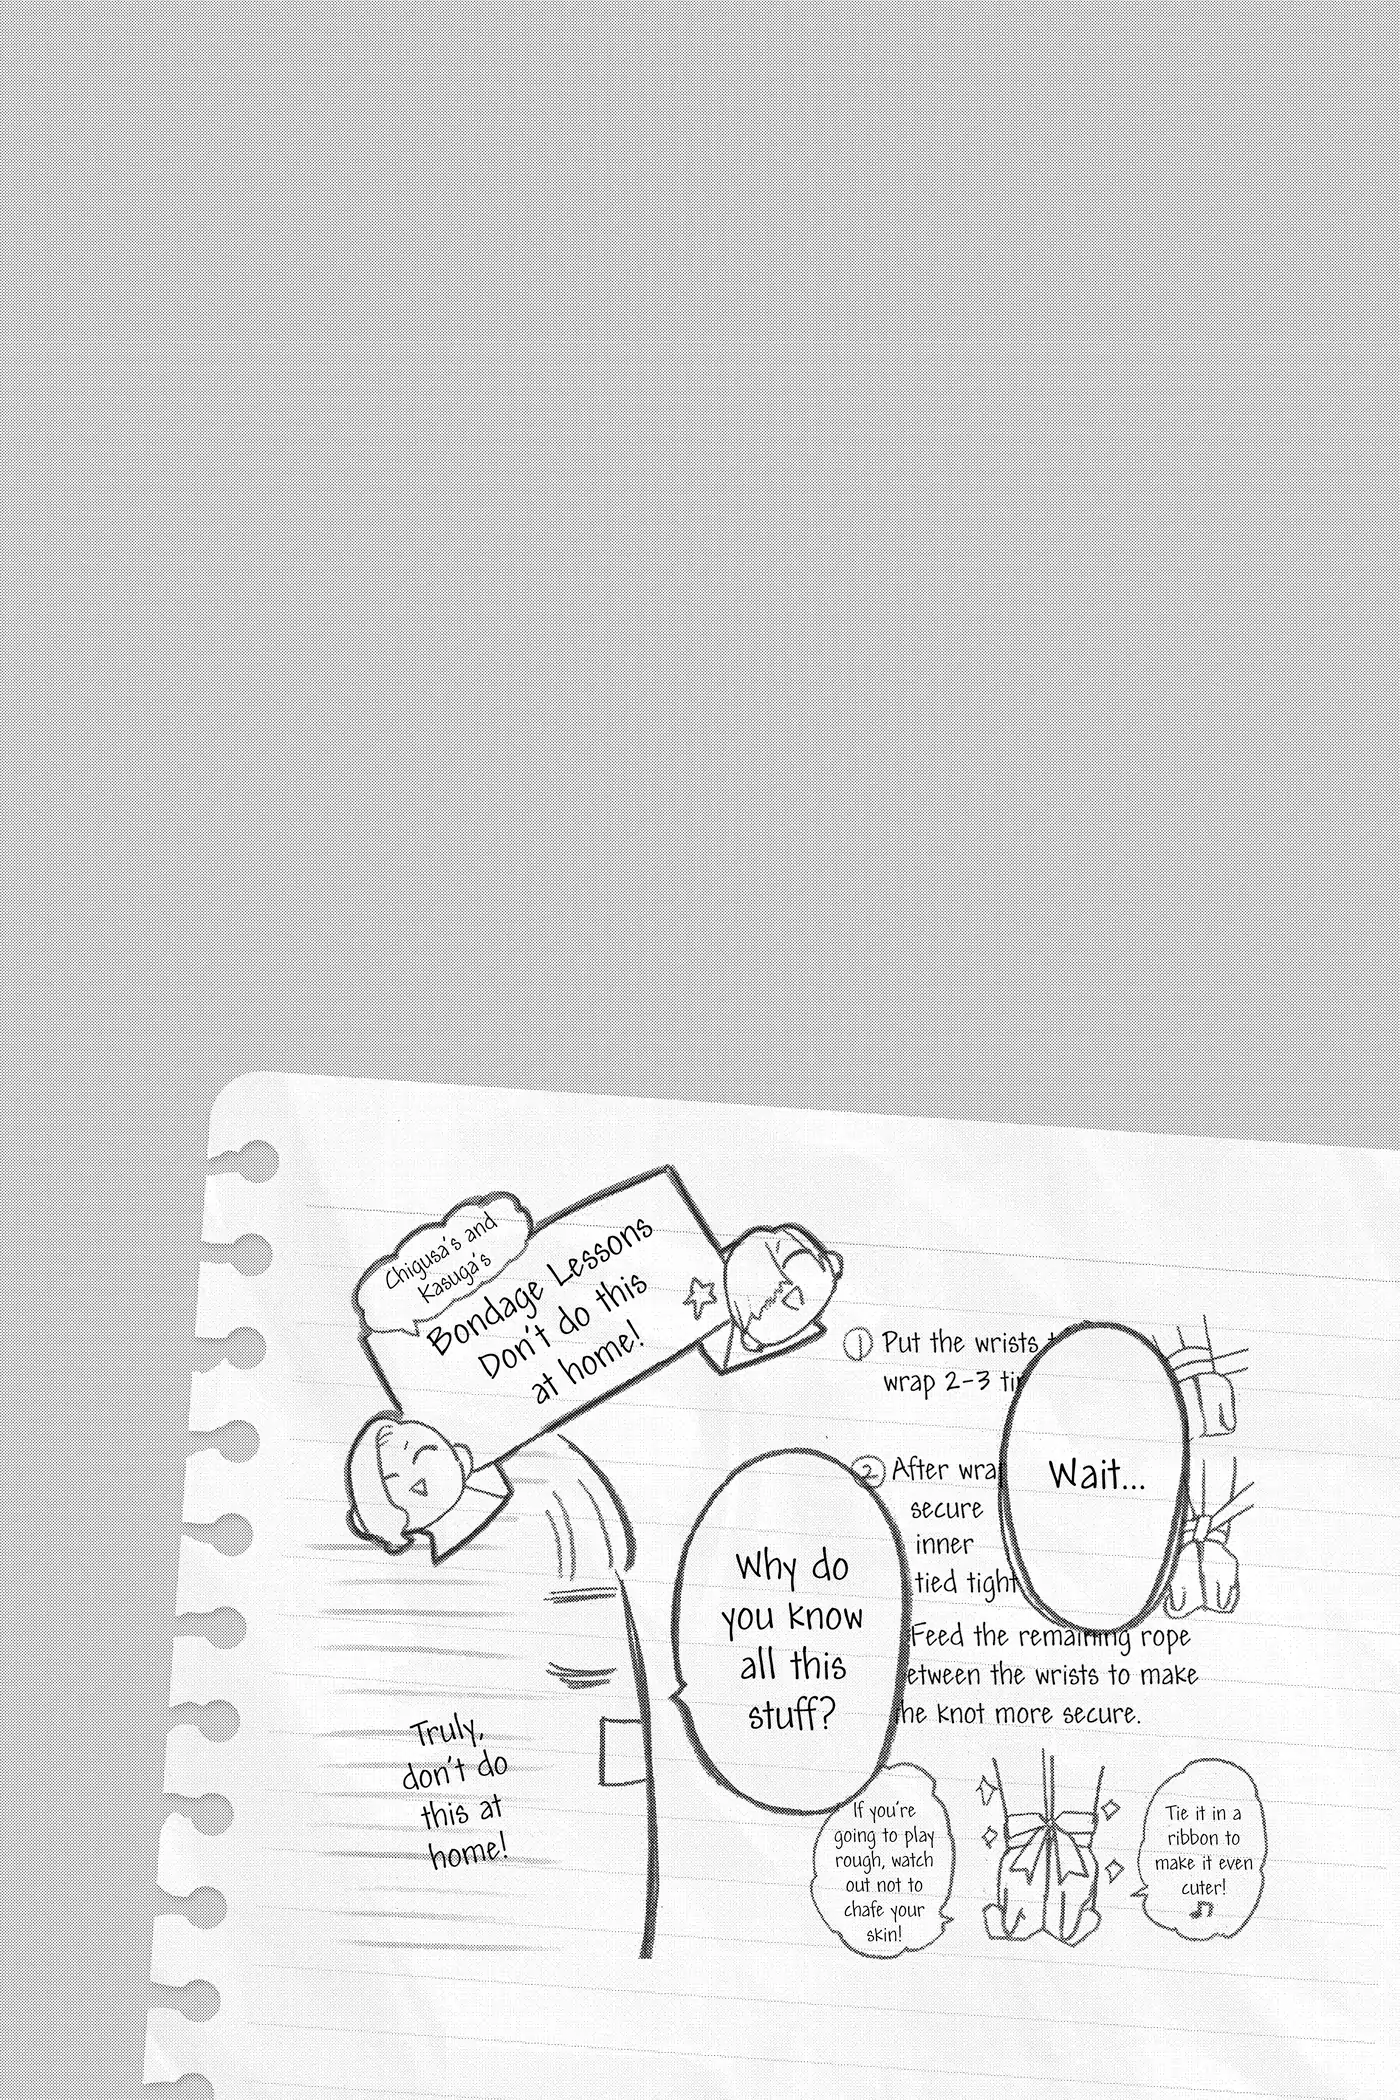 Chigusa's and
Kasuga's
Bondage Lessons
Don't do this
at home!
① Put the wrists
wrap 2-3
② After
secure
inner
tied tight
Feed the remaining rope
the wrists to make
knot more secure.
Wait...
Why do
you know
all this
stuff?
Truly,
don't do
this at
home!
If you're
going to play
rough, watch
out not to
chafe your
skin!
Tie it in a
ribbon to
make it even
cuter!
♫